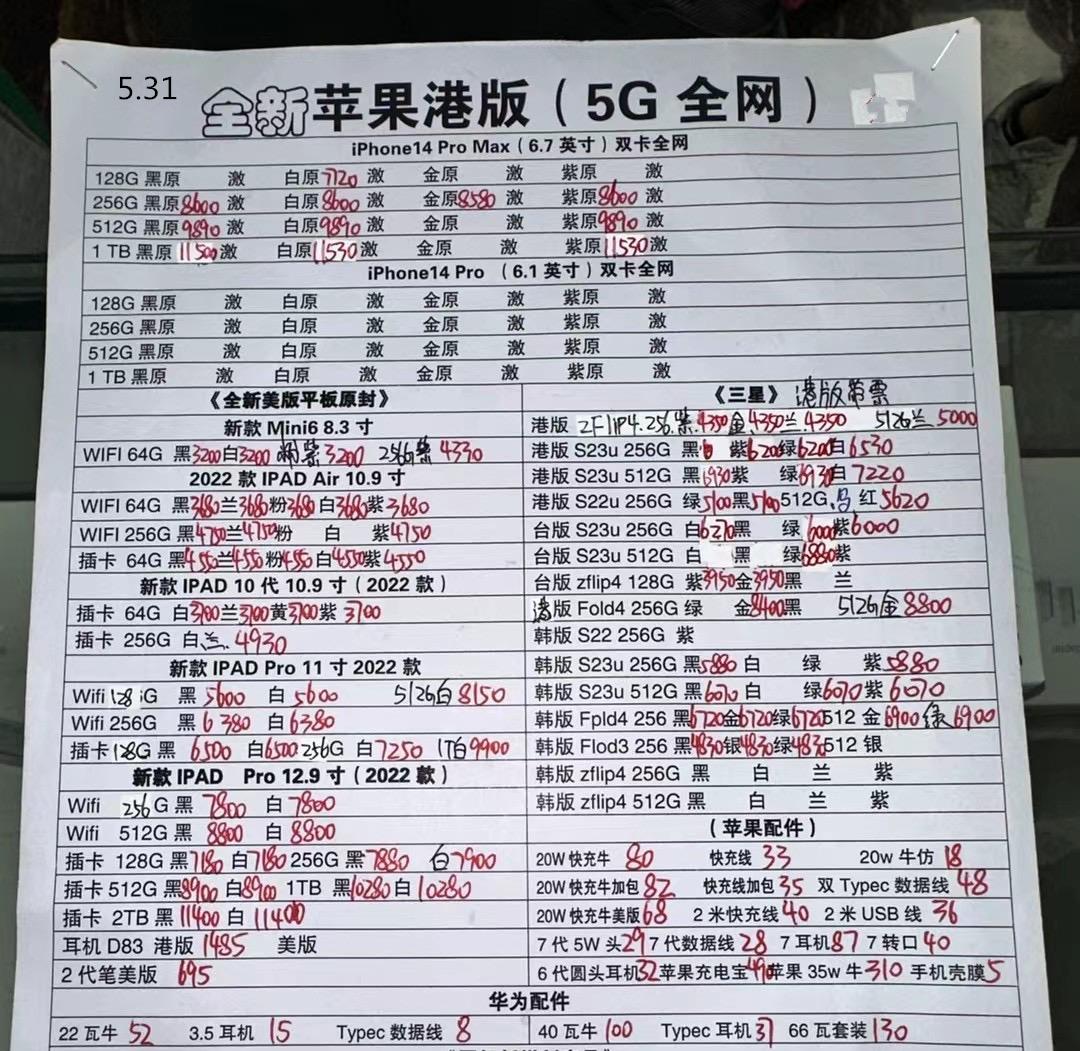 5.31
全新苹果港版（5G 全网）
iPhone14 Pro Max（6.7 英寸）双卡全网
128G 黑原 激 白原7720 激 金原 激 紫原 激
256G 黑原8600 激 白原8600 激 金原8580 激 紫原8600 激
512G 黑原9890 激 白原9890 激 金原 激 紫原9890 激
1 TB 黑原 11500 激 白原 11530 激 金原 激 紫原 11530 激
iPhone14 Pro （6.1 英寸）双卡全网
128G 黑原 激 白原 激 金原 激 紫原 激
256G 黑原 激 白原 激 金原 激 紫原 激
512G 黑原 激 白原 激 金原 激 紫原 激
1 TB 黑原 激 白原 激 金原 激 紫原 激
《全新美版平板原封》
新款 Mini6 8.3 寸
WIFI 64G 黑3200白3200 粉紫3200 256G紫4330
2022 款 IPAD Air 10.9 寸
WIFI 64G 黑3680兰3680粉3680白3680紫3680
WIFI 256G 黑4750兰4750粉 白 紫4750
插卡 64G 黑4550兰4550粉4550白4550紫4550
新款 IPAD 10 代 10.9 寸（2022 款）
插卡 64G 白3700兰3700黄3700紫 3700
插卡 256G 白兰.4930
新款 IPAD Pro 11 寸 2022 款
Wifi 128G 黑 5600 白 5600 512G白8150
Wifi 256G 黑 6380 白6380
插卡128G 黑 6500 白6500 256G 白7250 1T白9900
新款 IPAD Pro 12.9 寸（2022 款）
Wifi 256G 黑 7800 白7800
Wifi 512G 黑 8800 白 8800
插卡 128G 黑7180 白7180 256G 黑7880 白7900
插卡 512G 黑8900 白8900 1TB 黑10280白 10280
插卡 2TB 黑 11400 白 11400
耳机 D83 港版 1485 美版
2 代笔美版 695
《三星》港版带票
港版 ZFLIP4.256.紫.4350金.4350兰4350 512G兰5000
港版 S23u 256G 黑 紫6200绿6200白6530
港版 S23u 512G 黑6930紫 绿6930白7220
港版 S22u 256G 绿5100黑5100 512G. 红5620
台版 S23u 256G 白6270黑 绿6000紫6000
台版 S23u 512G 白 黑 绿6880紫
台版 zflip4 128G 紫3950金3950黑 兰
港版 Fold4 256G 绿 金8400黑 512G金8800
韩版 S22 256G 紫
韩版 S23u 256G 黑5880 白 绿 紫5880
韩版 S23u 512G 黑6070 白 绿6070紫6070
韩版 Fpld4 256 黑6720金6720绿6720 512 金6900绿6900
韩版 Flod3 256 黑4830银4830绿4830 512 银
韩版 zflip4 256G 黑 白 兰 紫
韩版 zflip4 512G 黑 白 兰 紫
（苹果配件）
20W 快充牛 80 快充线 33 20w 牛仿 18
20W 快充牛加包82 快充线加包35 双 Typec 数据线48
20W 快充牛美版68 2 米快充线40 2 米 USB 线 36
7 代 5W 头29 7 代数据线 28 7 耳机87 7 转口40
6 代圆头耳机32 苹果充电宝490 苹果 35w 牛310 手机壳膜5
华为配件
22 瓦牛 52 3.5 耳机 15 Typec 数据线 8 40 瓦牛 100 Typec 耳机37 66 瓦套装130